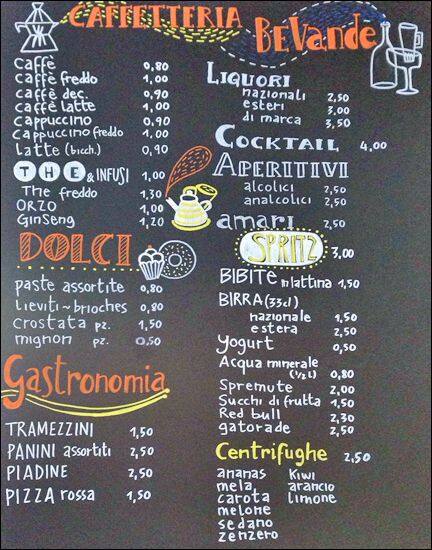 CAFFETTERIA
caffè 0,80
caffè freddo 1,00
caffè dec. 0,90
caffè latte 1,00
cappuccino 0,90
cappuccino freddo 1,00
latte (bicch.) 0,90
THE & INFUSI 1,00
The freddo 1,30
ORZO 1,00
GinSeng 1,20
DOLCI
paste assortite 0,80
lieviti ~ brioches 0,80
crostata pz. 1,50
mignon pz. 0,50
Gastronomia
TRAMEZZINI 1,50
PANINI assortiti 2,50
PIADINE 2,50
PIZZA rossa 1,50
BEVande
LIQUORI
nazionali 2,50
esteri 3,00
di marca 3,50
COCKTAIL 4,00
APERITIVI
alcolici 2,50
analcolici 2,50
amari 2,50
SPRITZ 3,00
BIBITE in lattina 1,50
BIRRA (33cl)
nazionale 1,50
estera 2,50
Yogurt 0,50
Acqua minerale
(½ L) 0,80
Spremute 2,00
Succhi di frutta 1,50
Red bull 2,30
gatorade 2,50
Centrifughe 2,50
ananas kiwi
mela arancio
carota limone
melone
sedano
zenzero